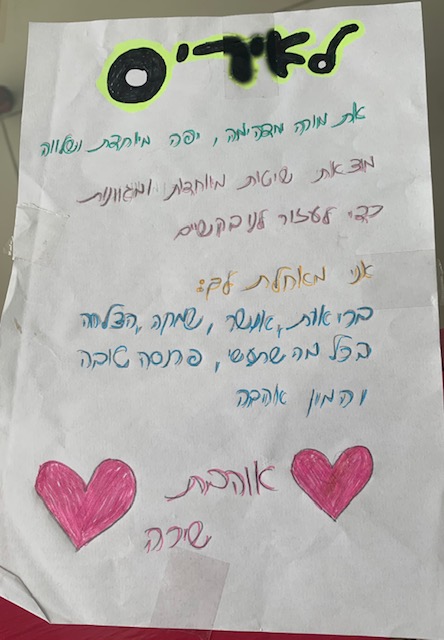 לאיריס
את מורה מדהימה, יפה מיוחדת ושלווה
מוצאת שיטות מיוחדות ומגוונות
כדי לעזור לנו בקשיים
אני מאחלת לך:
בריאות, אושר, שמחה, הצלחה
בכל מה שתעשי, פרנסה טובה
והמון אהבה
אוהבת
שירה